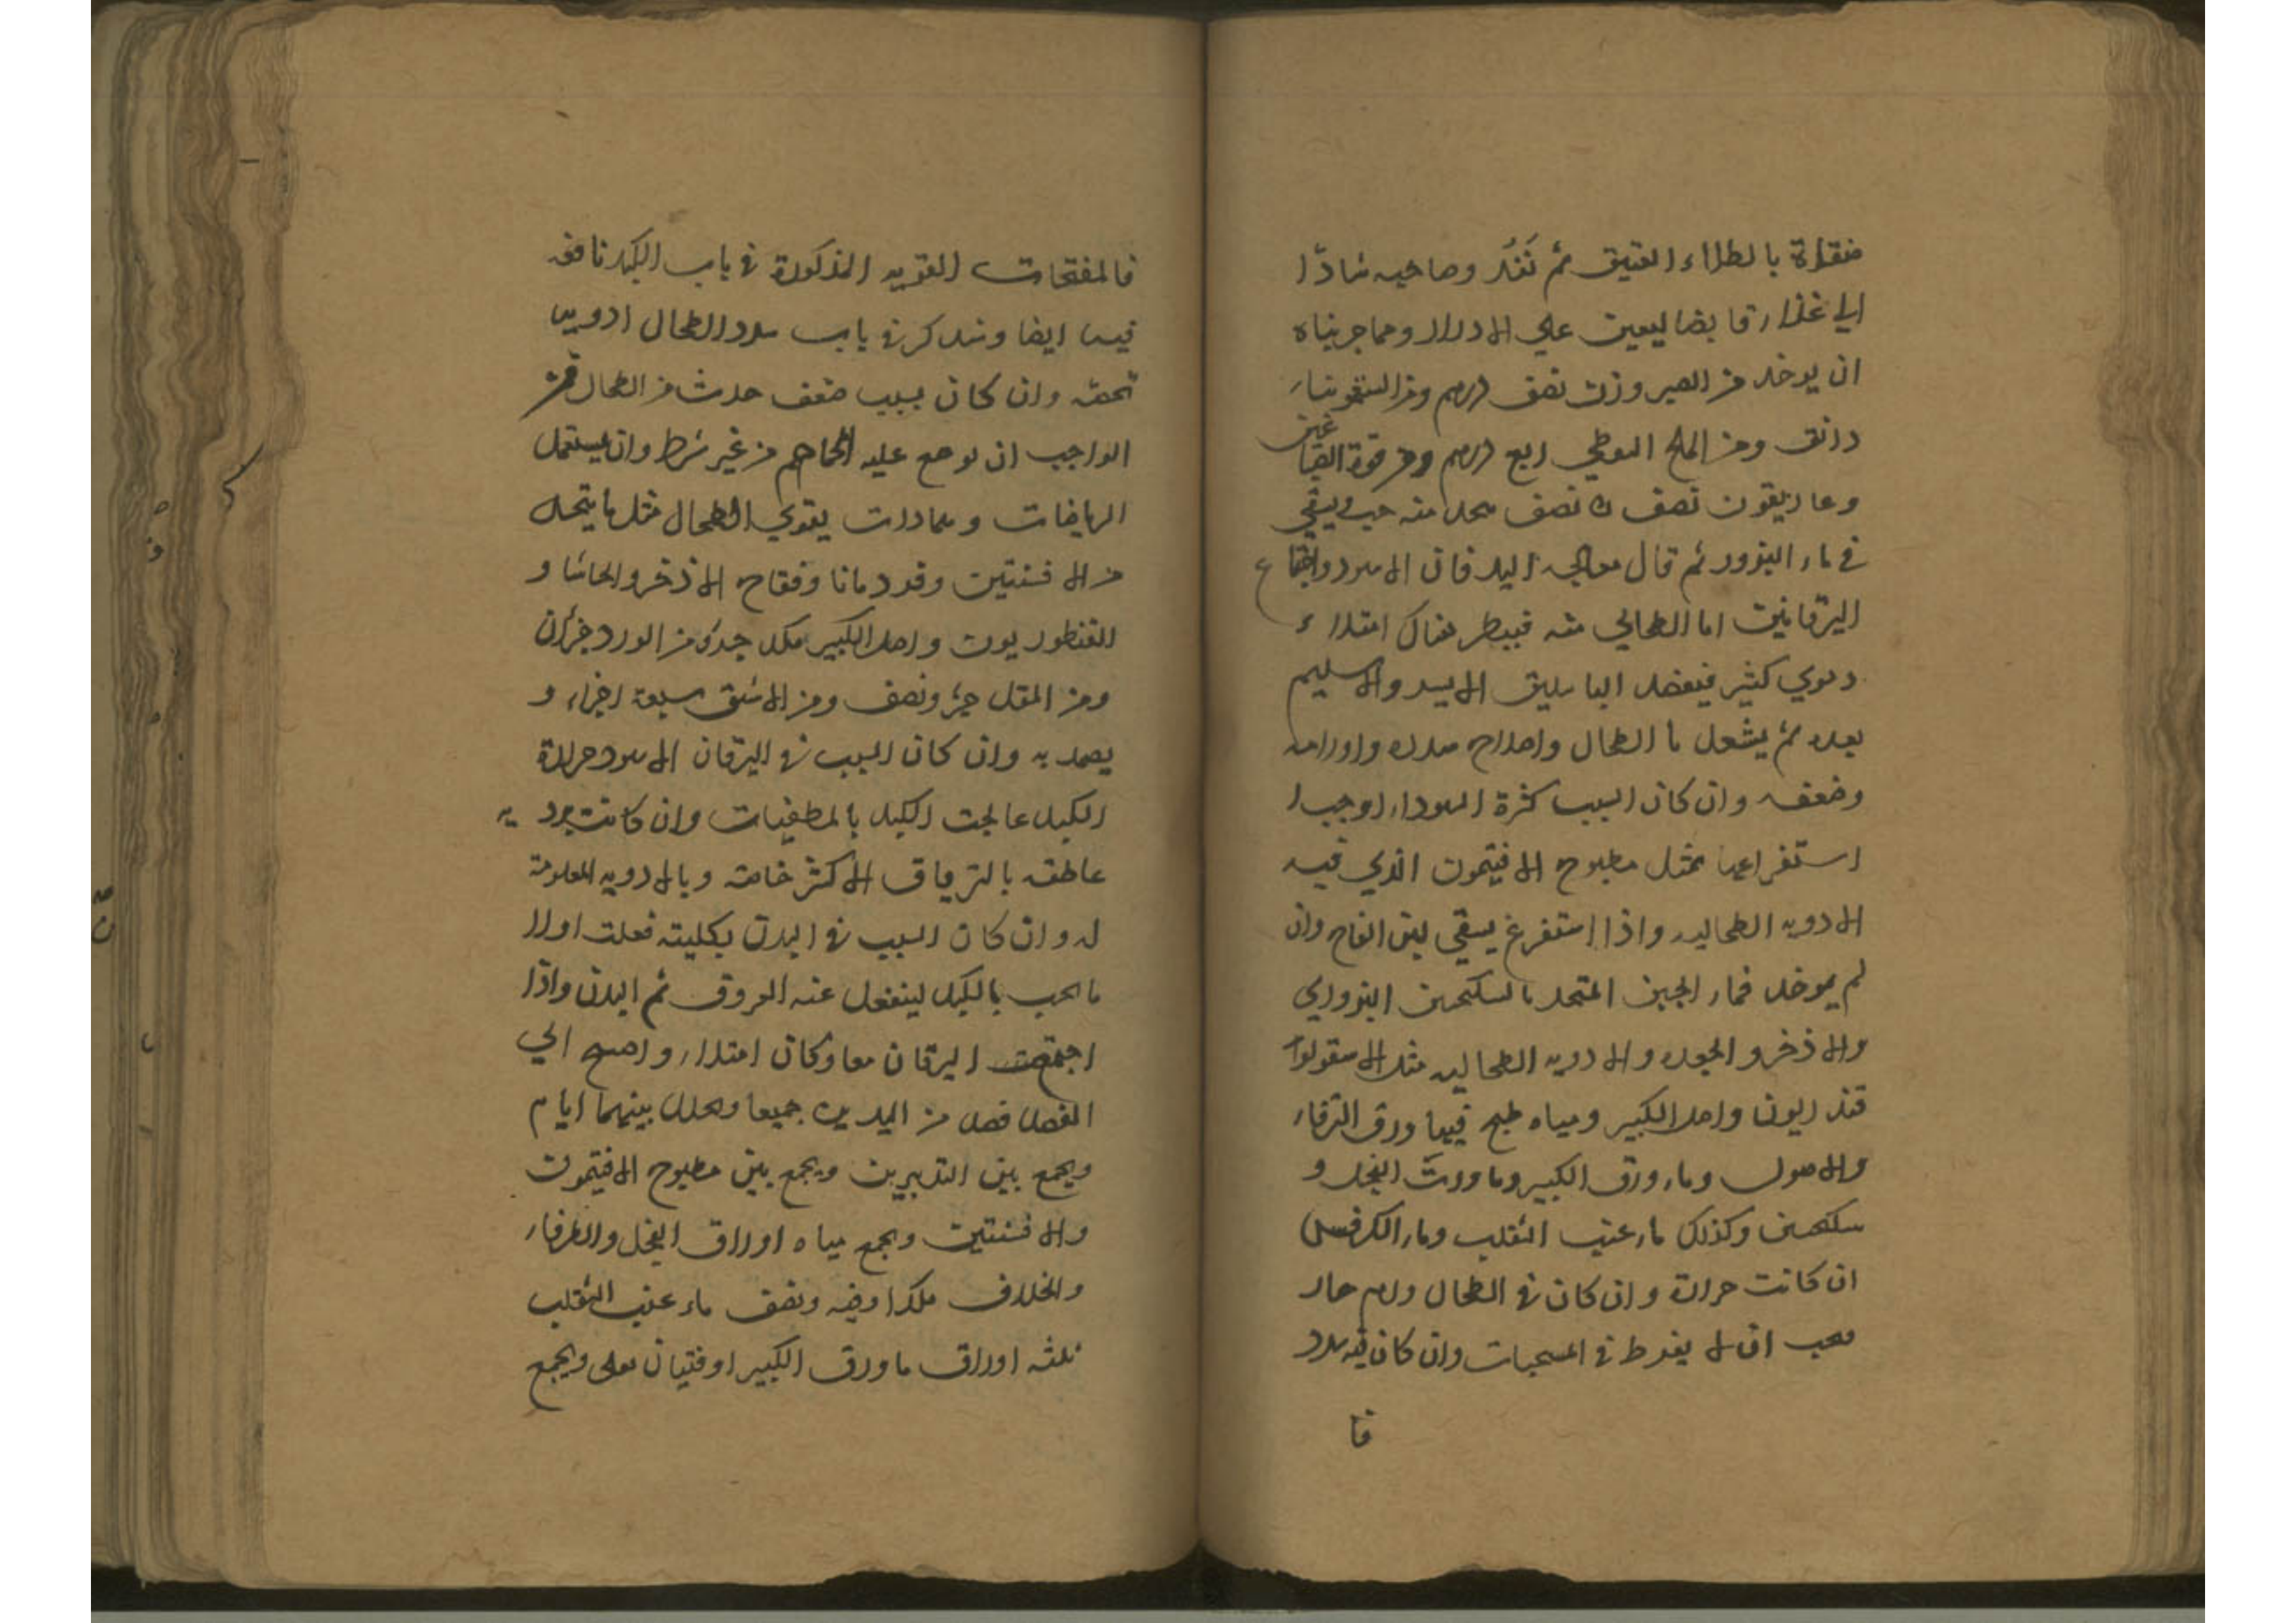 منقاة بالطلاء العتيق ثم نفذ وصاحبه شادا
الي غذاء قابضا ليعين علي الادرار ومما جربناه
ان يوخذ من الصبر وزن نصف درهم ومن السقمونياء
دانق ومن الملح النبطي ربع درهم ومن قوة القثاء
وغاريقون نصف نصف يتخذ منه حب ويسقي
في ماء البزور ثم قال معالجة اليرقان الاسود واجتماع
اليرقانين اما الطحالي منه فينظر هناك امتلاء
دموي كثير فيفصد الباسليق الايسر والاسليم
بعده ثم يشغل بالطحال واصلاح سدده واورامه
وضعفه وان كان السبب كثرة السوداء اوجب
استفراغها بمثل مطبوخ الافتيمون الذي فيه
الادوية الطحالية واذا استفرغ يسقي لبن اللقاح وان
لم يوخذ فماء الجبن المتخذ بالسكنجبين البزوري
والاذخر والجعده والادوية الطحالية مثل الاسقولو
قندريون واصل الكبير ومياه طبخ فيها ورق الترفاء
والاصول وماء ورق الكبير وما ورق الفجل و
سكنجبين وكذلك ماء عنب الثعلب وماء الكرفس
ان كانت حرارة وان كان في الطحال ورم حار
فيجب ان لا يفرط في المسخنات وان كان فيه سدد
فا
فالمفتحات القوية المذكورة في باب الكبد نافعة
فيها ايضا وسنذكر في باب سدد الطحال ادوية
تخصه وان كان بسبب ضعف حدث من الطحال فمن
الواجب ان توضع عليه المحاجم من غير شرط وان يستعمل
الرياضات وضمادات يقوي الطحال مثل ما يتخذ
من الافسنتين وقردمانا وفقاح الاذخر والحاشا و
القنطوريون واصل الكبير مكد جزء من الورد جزءان
ومن المقل جزء ونصف ومن الاشق سبعة اجزاء و
يضمد به وان كان السبب في اليرقان الاسود حرارة
الكبد عالجت الكبد بالمطفيات وان كانت بردية
عاطفه بالترياق الاكثر خاصة وبالادوية المعلومة
له وان كان السبب في البدن بكليته فعلت اولا
ما يجب بالكبد لينفعل عنه العروق ثم البدن واذا
اجتمعت اليرقان معا وكان امتلاء واحتيج الي
الفصد فصد من اليدين جميعا وجعل بينهما ايام
ويجمع بين التدبيرين ويجمع بين مطبوخ الافتيمون
والافسنتين ويجمع مياه اوراق الفجل والطرفاء
والخلاف ملكدا وضه ونصف ماء عنب الثعلب
ثلثه اوراق ما ورق الكبير اوقيتان يغلي ويجمع